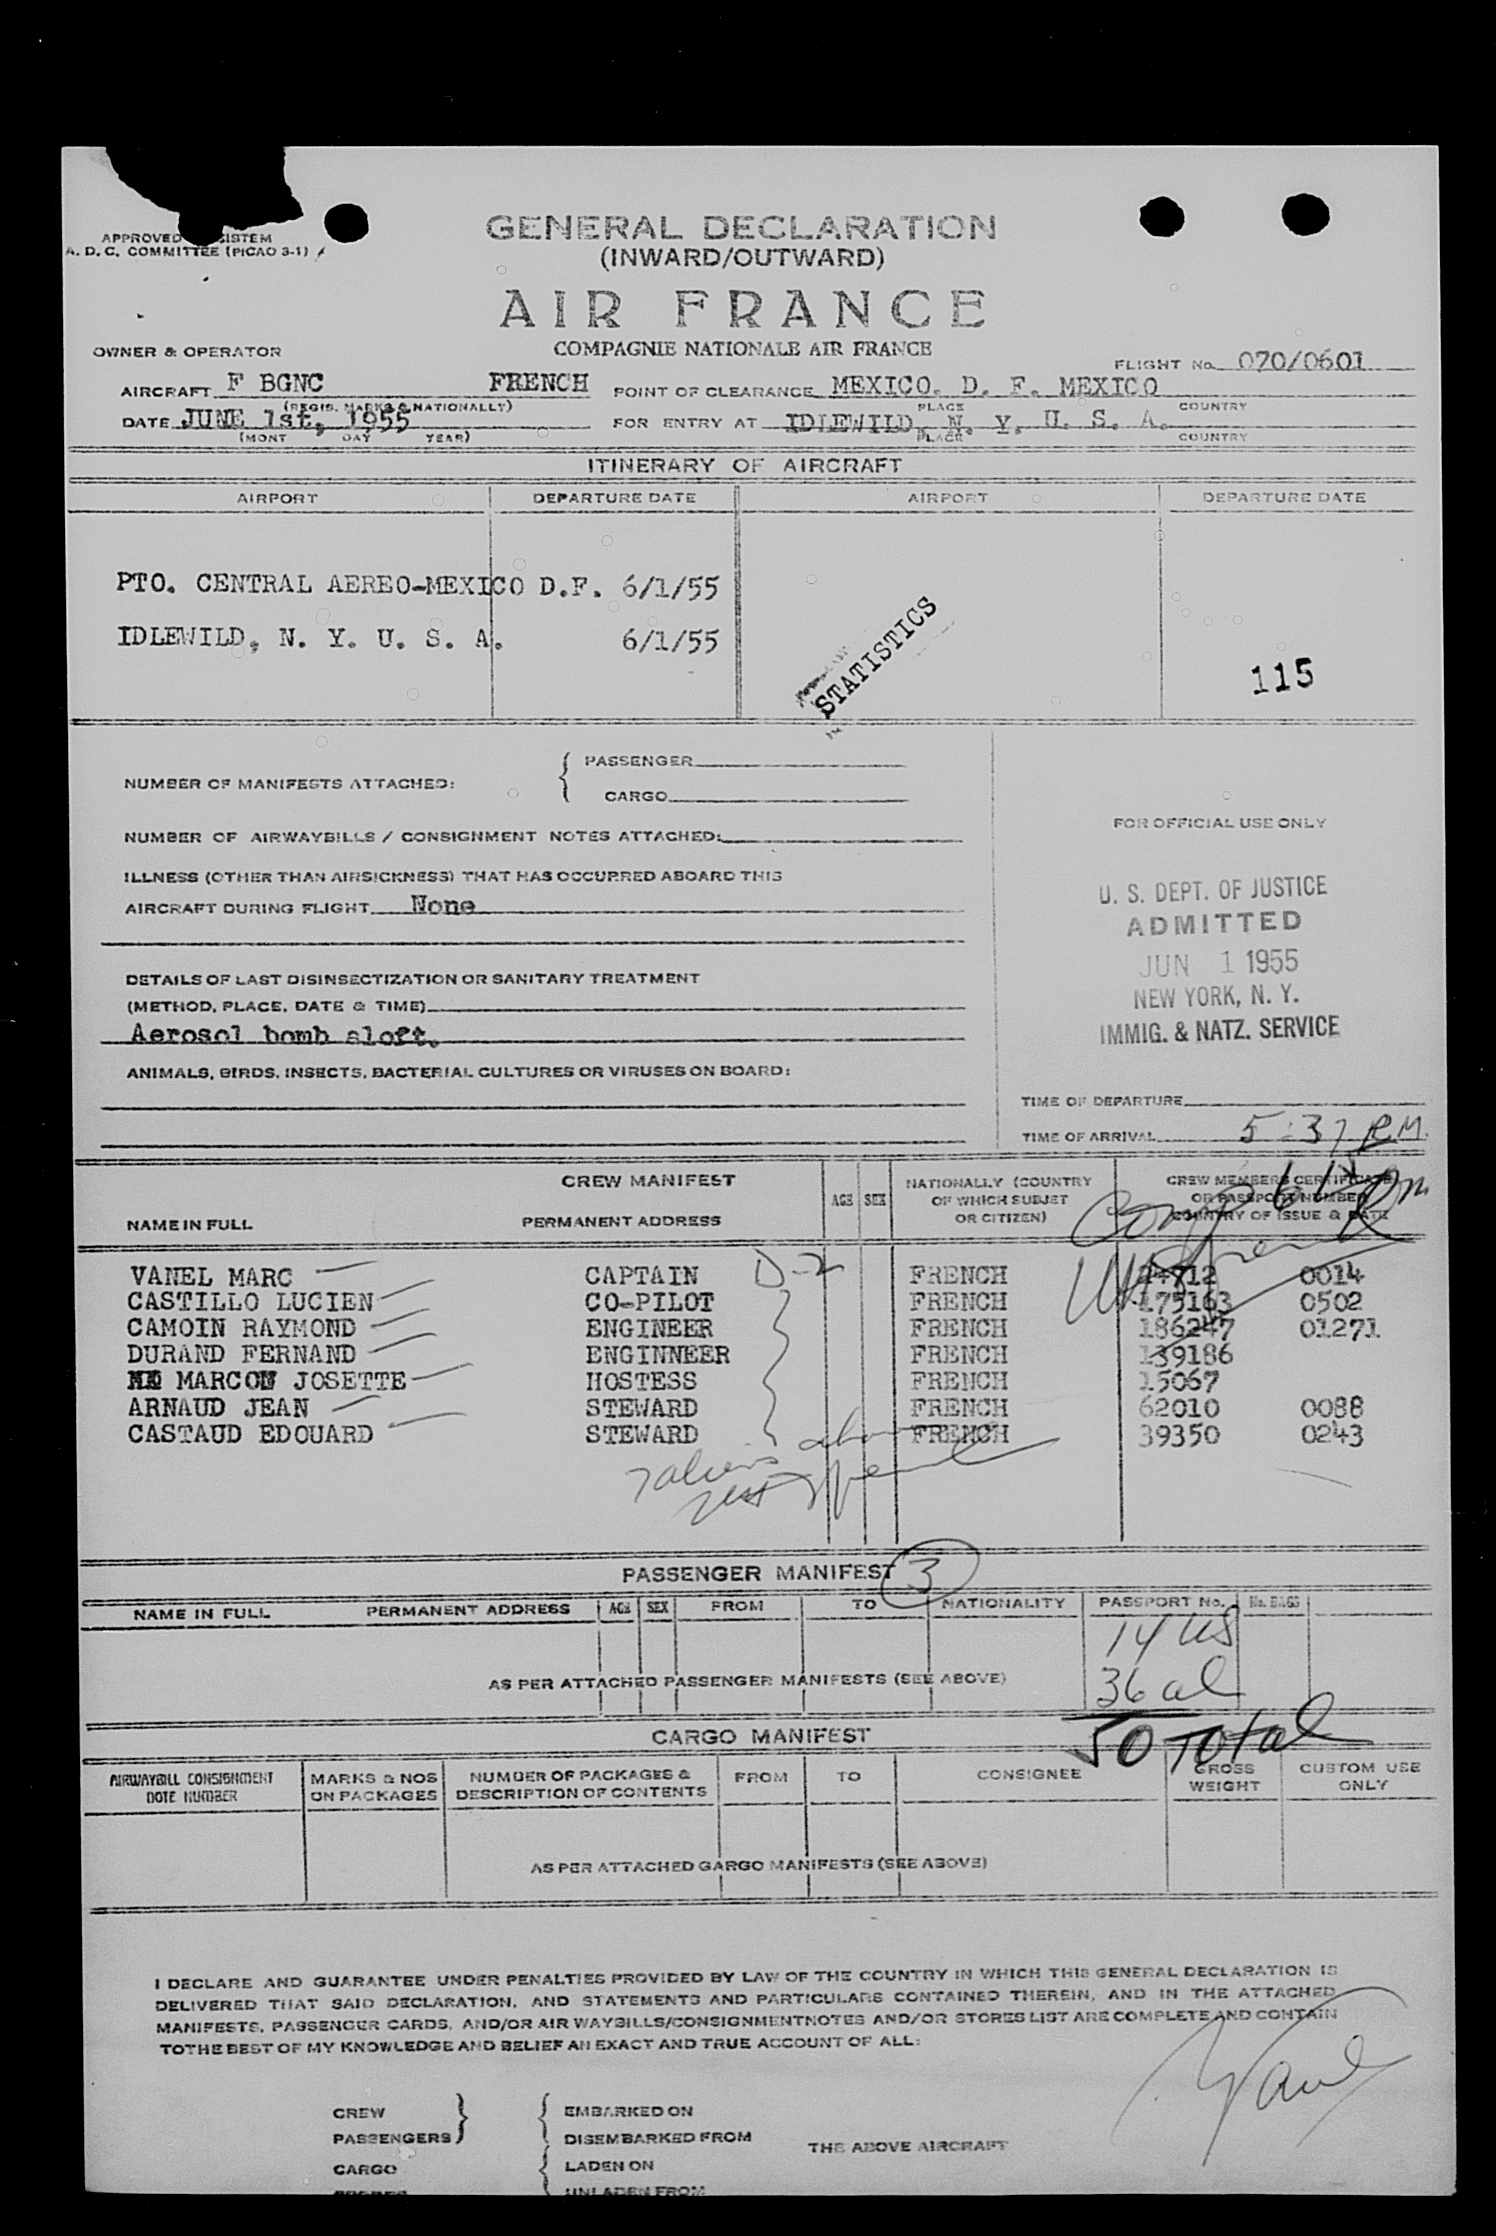 APPROVED SISTEM
A. D. C. COMMITTEE (PICAO 3-1)
GENERAL DECLARATION
(INWARD/OUTWARD)
AIR FRANCE
OWNER & OPERATOR COMPAGNIE NATIONALE AIR FRANCE FLIGHT No. 070/0601
AIRCRAFT F BGNC FRENCH POINT OF CLEARANCE MEXICO. D. F. MEXICO
(REGIS. MARKS & NATIONALLY) PLACE COUNTRY
DATE JUNE 1st, 1955 FOR ENTRY AT IDLEWILD, N. Y. U. S. A.
(MONT DAY YEAR) PLACE COUNTRY
ITINERARY OF AIRCRAFT
AIRPORT DEPARTURE DATE AIRPORT DEPARTURE DATE
PTO. CENTRAL AEREO-MEXICO D.F. 6/1/55
IDLEWILD, N. Y. U. S. A. 6/1/55
STATISTICS
115
NUMBER OF MANIFESTS ATTACHED: PASSENGER
CARGO
NUMBER OF AIRWAYBILLS / CONSIGNMENT NOTES ATTACHED:
FOR OFFICIAL USE ONLY
ILLNESS (OTHER THAN AIRSICKNESS) THAT HAS OCCURRED ABOARD THIS
AIRCRAFT DURING FLIGHT None
U. S. DEPT. OF JUSTICE
ADMITTED
JUN 1 1955
NEW YORK, N. Y.
IMMIG. & NATZ. SERVICE
DETAILS OF LAST DISINSECTIZATION OR SANITARY TREATMENT
(METHOD, PLACE, DATE & TIME)
Aerosol bomb aloft.
ANIMALS, BIRDS, INSECTS, BACTERIAL CULTURES OR VIRUSES ON BOARD:
TIME OF DEPARTURE
TIME OF ARRIVAL 5:37 P.M.
CREW MANIFEST
NAME IN FULL PERMANENT ADDRESS AGE SEX
NATIONALLY (COUNTRY
OF WHICH SUBJET
OR CITIZEN)
CREW MEMBERS CERTIFICATE
OR PASSPORT NUMBER
COUNTRY OF ISSUE & DATE
Comp
VANEL MARC CAPTAIN D-2 FRENCH 24712 0014
CASTILLO LUCIEN CO-PILOT FRENCH 175163 0502
CAMOIN RAYMOND ENGINEER FRENCH 186247 01271
DURAND FERNAND ENGINNEER FRENCH 139186
MARCOU JOSETTE HOSTESS FRENCH 15067
ARNAUD JEAN STEWARD FRENCH 62010 0088
CASTAUD EDOUARD STEWARD FRENCH 39350 0243
7 aliens
PASSENGER MANIFEST 3
NAME IN FULL PERMANENT ADDRESS AGE SEX FROM TO NATIONALITY PASSPORT No. No. BAGS
14 US
AS PER ATTACHED PASSENGER MANIFESTS (SEE ABOVE)
36 al
50 Total
CARGO MANIFEST
AIRWAYBILL CONSIGNMENT
NOTE NUMBER
MARKS & NOS
ON PACKAGES
NUMBER OF PACKAGES &
DESCRIPTION OF CONTENTS
FROM TO CONSIGNEE
GROSS
WEIGHT
CUSTOM USE
ONLY
AS PER ATTACHED GARGO MANIFESTS (SEE ABOVE)
I DECLARE AND GUARANTEE UNDER PENALTIES PROVIDED BY LAW OF THE COUNTRY IN WHICH THIS GENERAL DECLARATION IS
DELIVERED THAT SAID DECLARATION, AND STATEMENTS AND PARTICULARS CONTAINED THEREIN, AND IN THE ATTACHED
MANIFESTS, PASSENGER CARDS, AND/OR AIR WAYBILLS/CONSIGNMENTNOTES AND/OR STORES LIST ARE COMPLETE AND CONTAIN
TOTHE BEST OF MY KNOWLEDGE AND BELIEF AN EXACT AND TRUE ACCOUNT OF ALL:
CREW EMBARKED ON
PASSENGERS DISEMBARKED FROM
THE ABOVE AIRCRAFT
CARGO LADEN ON
UNLADEN FROM